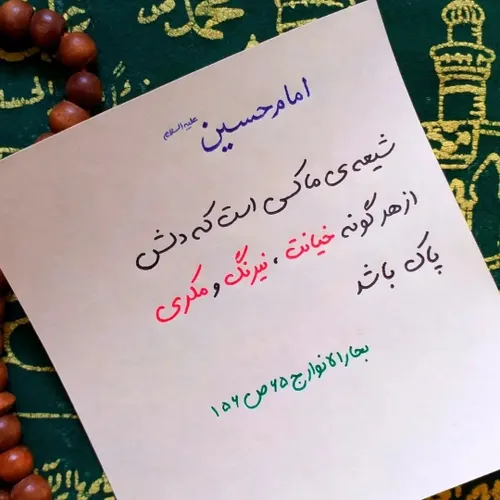 امام حسین علیه السلام
شیعه‌ی ما کسی است که دلش
از هر گونه خیانت، نیرنگ و مکری
پاک باشد
بحارالانوار ج ۶۵ ص ۱۵۶